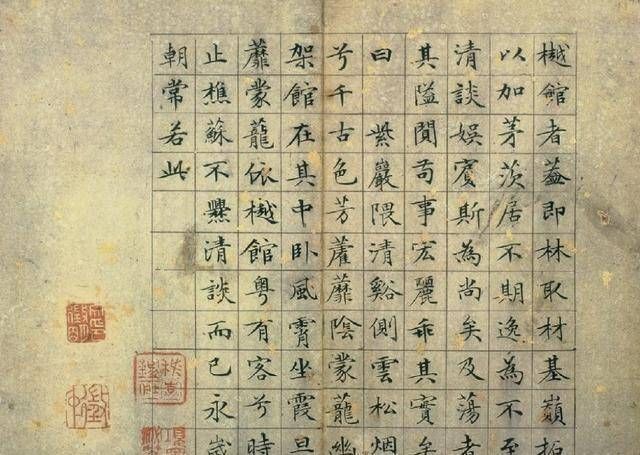 樾館者葢即林取材基嶺拓
以加茅茨居不期逸為不至
清談娛賓斯為尚矣及蕩者
其隘閴苟事宏麗乖其實矣
曰紫巖隈清谿側雲松烟
兮千古色芳藿蘼陰蒙蘢幽
架館在其中卧風霄坐霞旦
蘼蒙蘢依樾館粵有客兮時
止樵蘇不爨清談而已永歲
朝常若此